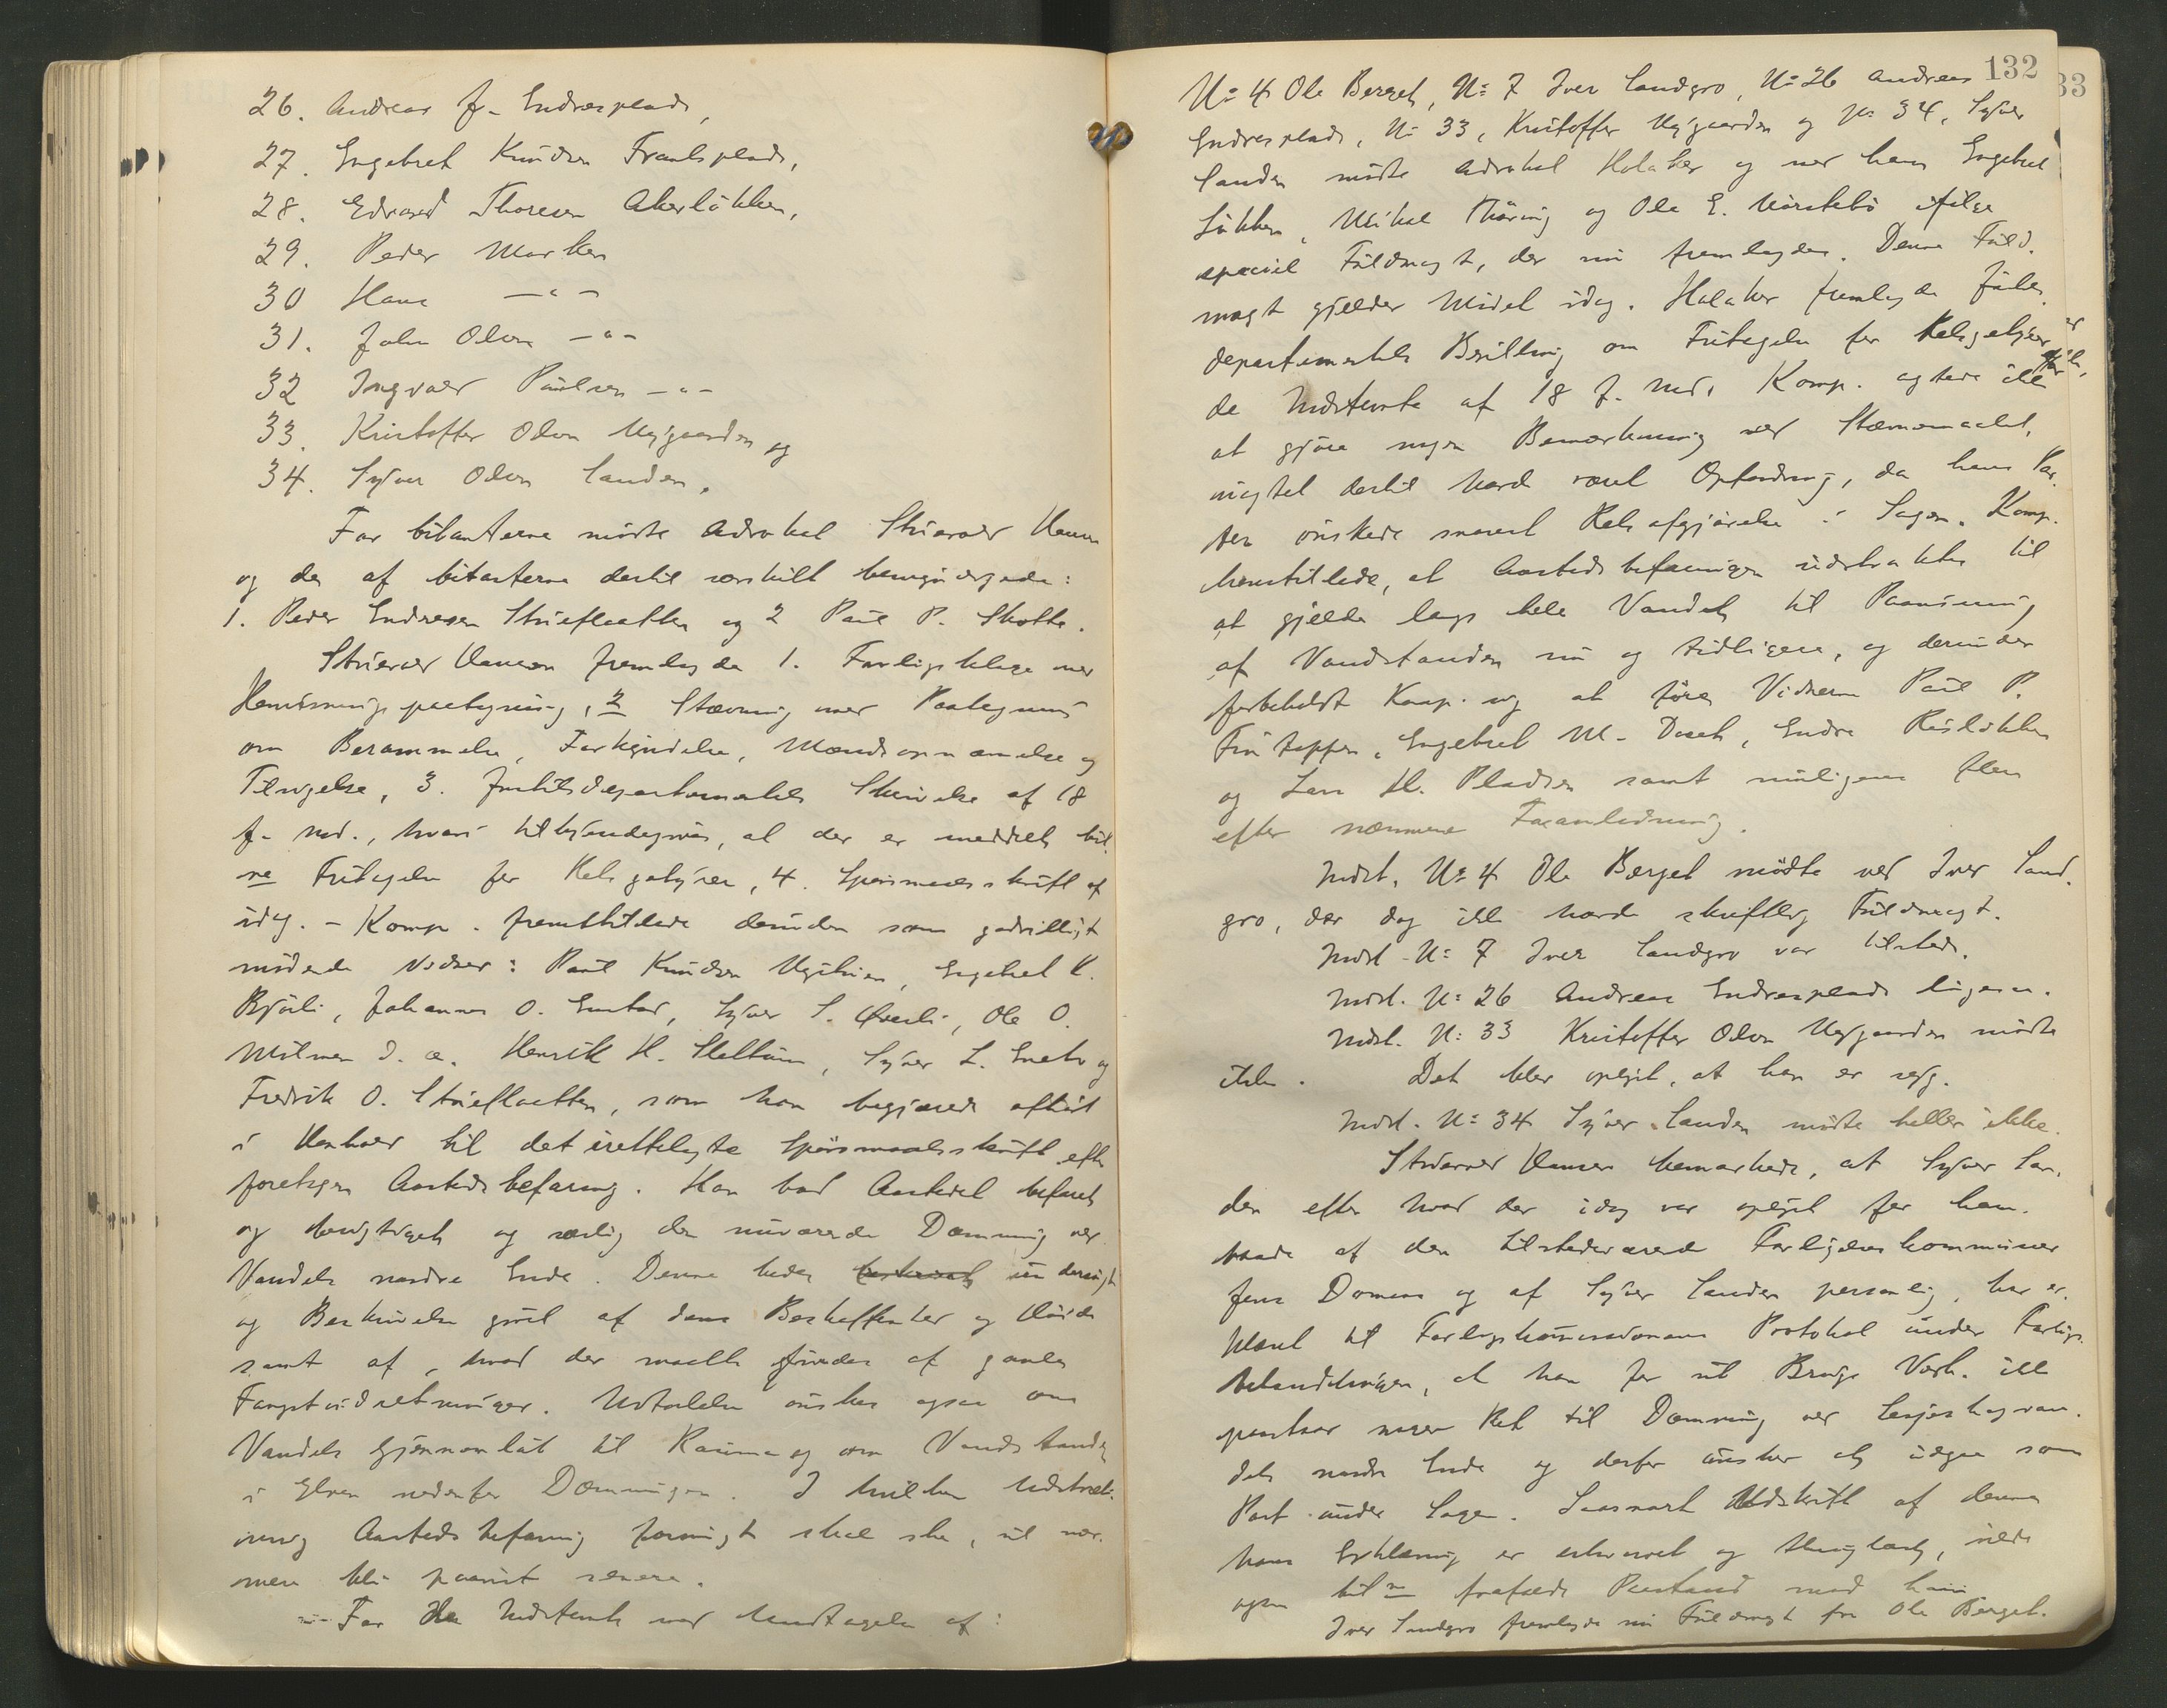 26. Andreas J. Endresplads,
27. Engebret Knudsen Frankplads,
28. Edvard Thoresen Akerløkken,
29. Peder Marken
30 Hans —"—
31. John Olsen —"—
32 Ingvald Paulsen —"—
33. Kristoffer Olsen Nygaarden og
34. Syver Olsen Sanden.
For citanterne mødte Advokat Hansen
og de af citanterne dertil særskilt bemyndigede:
1. Peder Endresen Stuefloatten og 2 Paul P. Skotte.
Hansen fremlagde 1. Forligsklage med
Henvisningspaategning, 2 Stævning med Paategning
om Berammelse, Forkyndelse, Mandsopnævnelse og
Tilsigelse, 3. Justitsdepartementets Skrivelse af 18
f. Md., hvori tilkjendegives, at der er meddelt cit.
ne Fritagelse for Retsgebyrer, 4. Spørsmaalsskrift af
idag. – Komp. fremstillede desuden som godvilligt
mødende Vidner: Paul Knudsen, Engebret K.
Bjorli, Johannes O. Enstad, Syver S. Øverli, Ole O.
Mølmen d. æ. Henrik H. Slettum, Syver L. Enebo og
Fredrik O. Stuefloatten, som han begjærede afhørt
i Henhold til det irettelagte Spørsmaalsskrift efter
foretagen Aastedsbefaring. Han bad Aastedet befaret
og besigtiget og særlig den nuværende Dæmning ved
Vandets nordre Ende. Denne bedes undersøgt
og Beskrivelse givet af dens Beskaffenhed og Høide
samt af, hvad der maatte findes af gamle
Fangstindretninger. Udtalelse ønskes ogsaa om
Vandets Gjennemløb til Rauma og om Vandstanden
i Elven nedenfor Dæmningen. I hvilken Udstræk-
ning Aastedsbefaring forøvrigt skal ske, vil nær-
mere bli paavist senere.
For de Indstevnte med Undtagelse af:
132
33
No 4 Ole Berget, No 7 Iver Sandgro, No 26 Andreas
Endresplads, No 33, Kristoffer Nygaarden og No 34, Syver
Sanden mødte Advokat Holaker og med ham Engebret
Løkken, Mikal Thøring og Ole E. ifølge
speciel Fuldmagt, der nu fremlagdes. Denne Fuld-
magt gjælder Mødet idag. Holaker fremlagde Justits-
departementets Bevilling om Fritagelse for Retsgebyrer
de Indstevnte af 18 f. Md. Komp. agtede ikke
at gjøre nogen Bemærkning ved Stævnemaalet,
uagtet dertil havde været Opfordring, da hans Par-
ter ønskede snarest Retsafgjørelse i Sagen. Komp.
henstillede, at Aastedsbefaringen udstraktes til
at gjelde langs hele Vandet til Paavisning
af Vandstanden nu og tidligere, og derunder
forbeholdt Komp. sig at føre Vidnerne Paul P.
Engebret M. Endre Rusløkken
og Lars H. Pladsen samt muligens flere
efter nærmere Foranledning.
Indst. No 4 Ole Berget mødte ved Iver Sand-
gro, der dog ikke havde skriftlig Fuldmagt.
Indst. No 7 Iver Sandgro var tilstede.
Indst. No 26 Andreas Endresplads ligesaa.
Indst. No 33 Kristoffer Olsen Nygaarden mødte
ikke. Det blev oplyst, at han er syg.
Indst. No 34 Syver Sanden mødte heller ikke.
Hansen bemærkede, at Syver San-
den efter hvad der idag var oplyst for ham
baade af den tilstedeværende Forligelseskommissær
Jens Domaas og af Syver Sanden personlig, har er-
klæret til Forligskommissionens Protokol under Forligs-
behandlingen, at han for sit Brugs Vedk. ikke
paastaar nogen Ret til Dæmning ved Lesjeskogvan-
dets nordre Ende og derfor ønsker at udgaa som
Part under Sagen. Saasnart Udskrift af denne
hans Erklæring er erhvervet og fremlagt, vilde
ogsaa cit.ne frafalde Paastand mod ham.
Iver Sandgro fremlagde nu Fuldmagt fra Ole Berget.